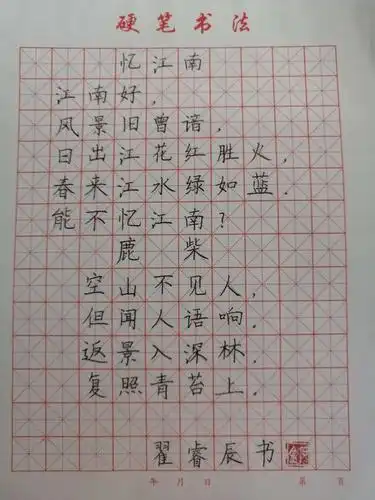 硬笔书法
忆江南
江南好,
风景旧曾谙,
日出江花红胜火,
春来江水绿如蓝.
能不忆江南?
鹿柴
空山不见人,
但闻人语响.
返景入深林.
复照青苔上.
翟睿辰书
年月日 第 页